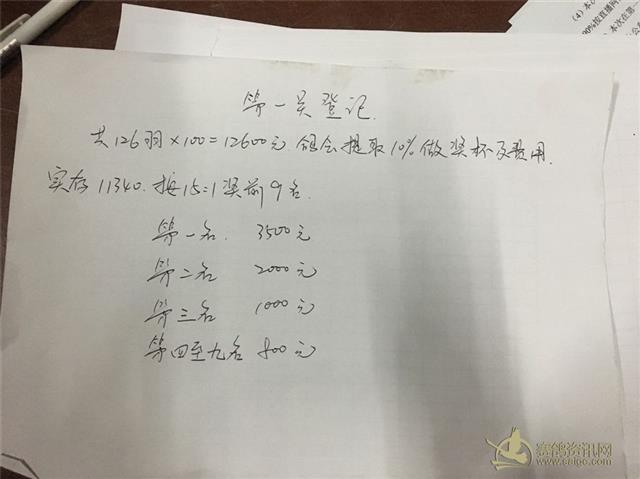 (4) 本次
90%按直播网
本次在第
第一关登记.
共126羽×100=12600元 鸽会提取10%做奖杯及费用.
实存11340. 按15=1奖前9名.
第一名. 3500元
第二名 2000元
第三名 1000元
第四至九名 800元
赛鸽资讯网
www.saige.com